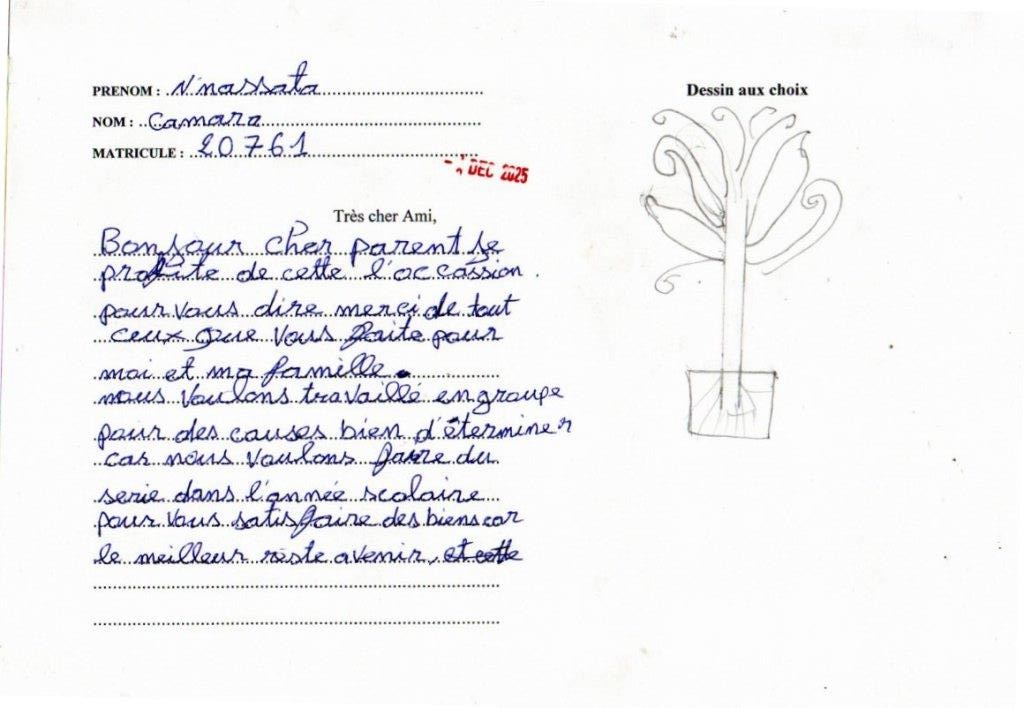 PRENOM : N'nassata
NOM : Camara
MATRICULE : 20761
DEC 2025
Dessin aux choix
Très cher Ami,
Bonjour cher parent je
profite de cette l'occassion.
pour vous dire merci de tout
ceux que vous faite pour
moi et ma famille.
nous voulons travaillé en groupe
pour des causes bien d'éterminer
car nous voulons faire du
serie dans l'année scolaire
pour vous satisfaire des biens car
le meilleur reste avenir, et cette